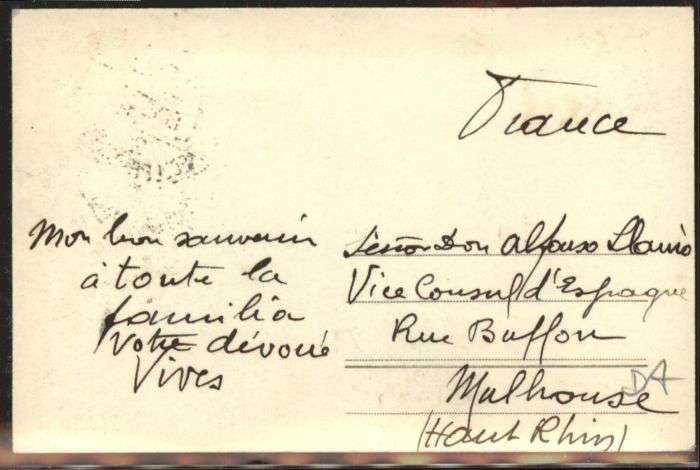 France
Mon bon souvenir
à toute la
familia
Votre dévoué
Vives
Señor Don Alfonso
Vice Consul d'Espagne
Rue Buffon
Mulhouse
(Haut Rhin)
DA